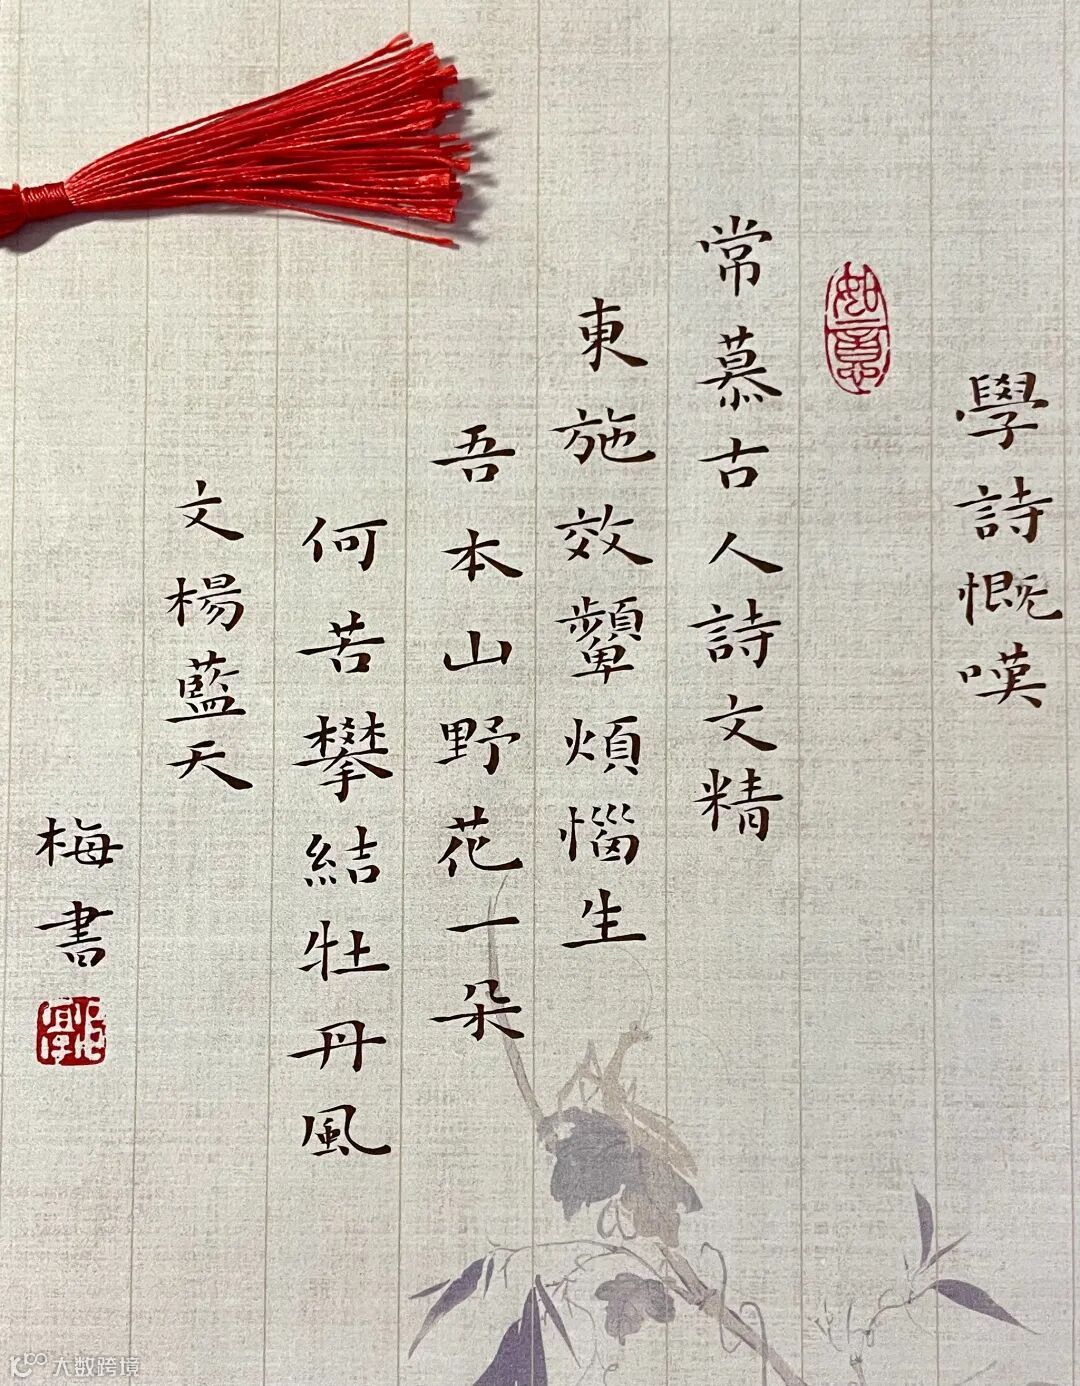 學詩慨嘆
如意
常慕古人詩文精
東施效顰煩惱生
吾本山野花一朵
何苦攀結牡丹風
文楊藍天
梅書
大数跨境